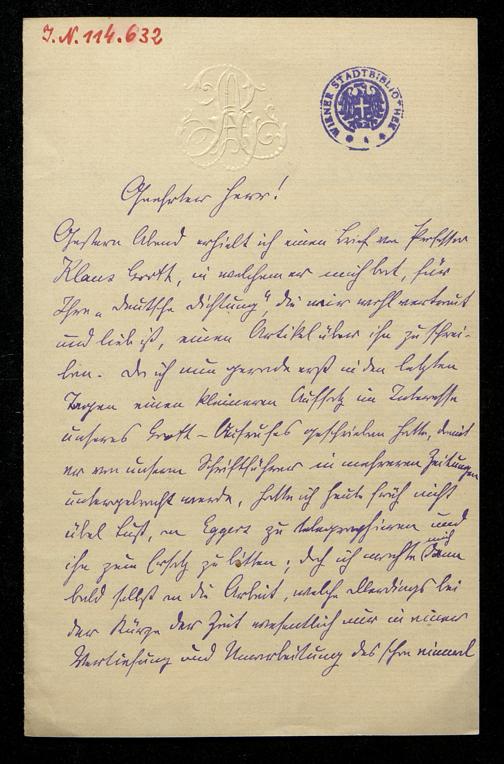 J.N. 114.632
WIENER STADTBIBLIOTHEK
Geehrter Herr!
Gestern Abend erhielt ich einen Brief von Professor
Klaus Groth, in welchem er mich bat, für
Ihre „Deutsche Dichtung“, die mir wohl vertraut
und lieb ist, einen Artikel über ihn zu schrei-
ben. Da ich nun gerade erst in den letzten
Tagen einen kleineren Aufsatz im Interesse
unseres Groth-Aufrufes geschrieben hatte, damit
er von unsern Schriftführern in mehreren Zeitungen
untergebracht werde, hatte ich heute früh nicht
übel Lust, an Eggers zu telegraphieren und
ihn zum Ersatz zu bitten; doch ich machte mich dann
bald selbst an die Arbeit, welche allerdings bei
der Kürze der Zeit wesentlich nur in einer
Vertiefung und Umarbeitung des schon einmal